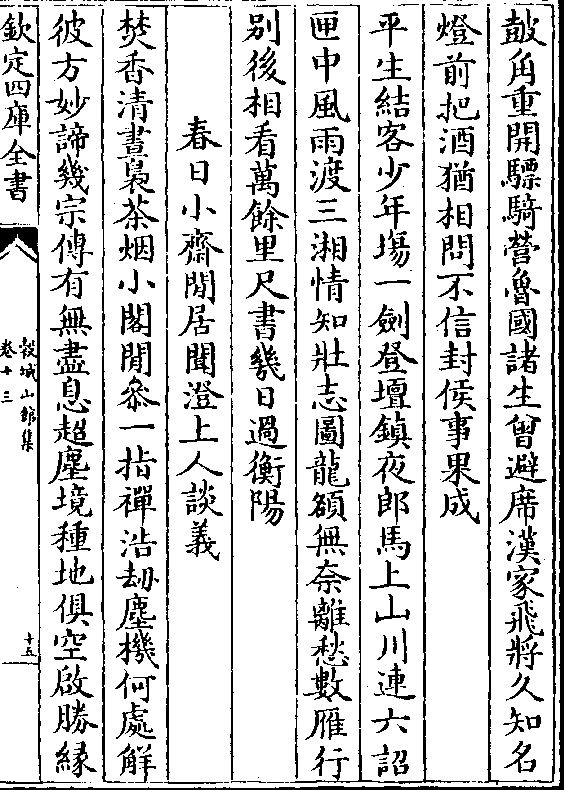 鼓角重開驃騎營魯國諸生曾避席漢家飛將久知名
燈前把酒猶相問不信封侯事果成
平生結客少年塲一劍登壇鎮夜郎馬上山川連六詔
匣中風雨渡三湘情知壯志圖龍額無奈離愁數雁行
别後相看萬餘里尺書幾日過衡陽
春日小齋閒居聞澄上人談義
焚香清晝裊茶烟小閣閒叅一指禪浩劫塵機何處解
彼方妙諦幾宗傳有無盡息超塵境種地俱空啟勝縁
欽定四庫全書
榖城山館集
卷十三
十五